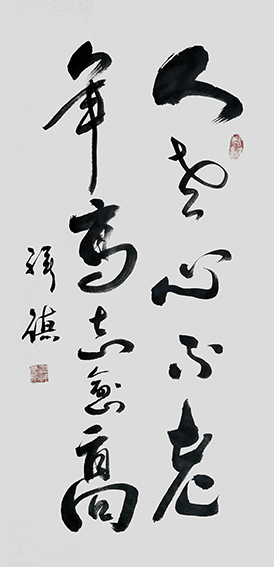 人老心不老
年高志愈高